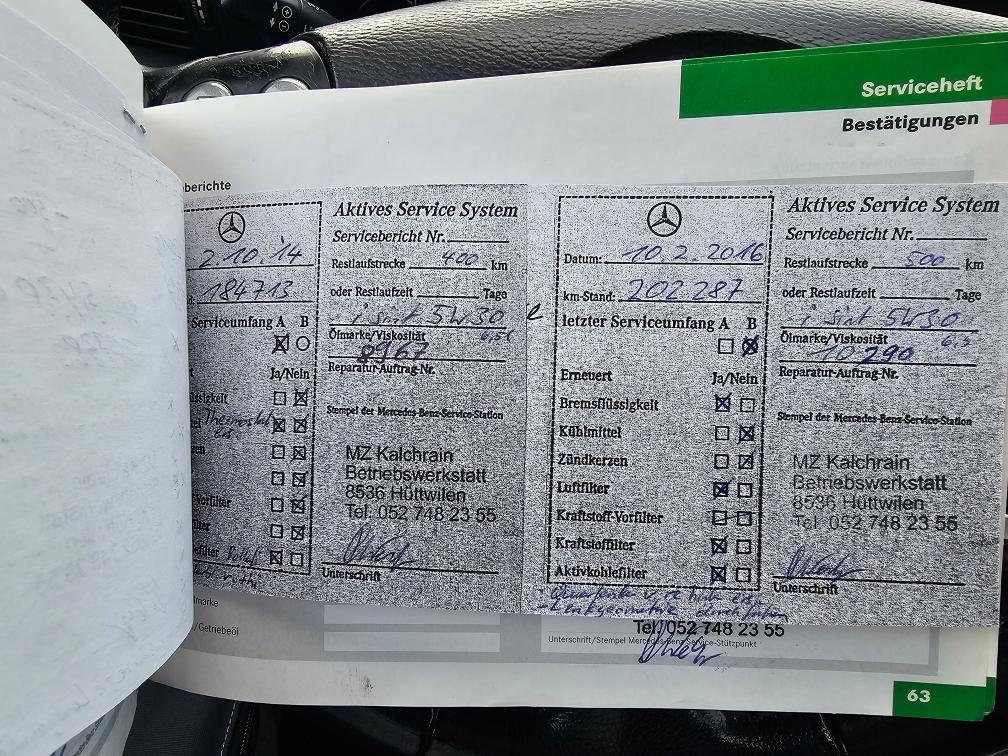 Serviceheft
Bestätigungen
berichte
Aktives Service System
Servicebericht Nr.
2.10.'14
Restlaufstrecke 400 km
184713
oder Restlaufzeit Tage
Serviceumfang A B
5W30
Ölmarke/Viskosität
8967
Reparatur-Auftrag-Nr.
Ja/Nein
üssigkeit
Thermostat
Stempel der Mercedes-Benz-Service-Station
en
MZ Kalchrain
Betriebswerkstatt
8536 Hüttwilen
Tel. 052 748 23 55
Vorfilter
ilter
efilter
Unterschrift
Aktives Service System
Servicebericht Nr.
Datum: 10.2.2016
Restlaufstrecke 500 km
km-Stand: 202 287
oder Restlaufzeit Tage
letzter Serviceumfang A B
5W30
Ölmarke/Viskosität 6,5
10290
Reparatur-Auftrag-Nr.
Erneuert Ja/Nein
Bremsflüssigkeit
Stempel der Mercedes-Benz-Service-Station
Kühlmittel
Zündkerzen
MZ Kalchrain
Betriebswerkstatt
8536 Hüttwilen
Tel. 052 748 23 55
Luftfilter
Kraftstoff-Vorfilter
Kraftstoffilter
Aktivkohlefilter
Unterschrift
lmarke
/Getriebeöl
Tel. 052 748 23 55
Unterschrift/Stempel Mercedes-Benz Service-Stützpunkt
63